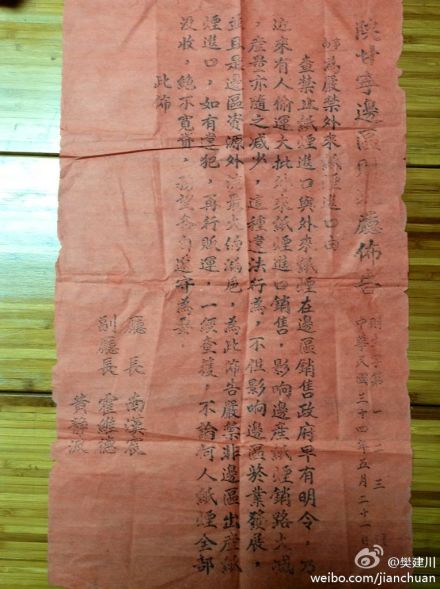 陝甘寧邊區財政廳佈告
財文字第一二三
中華民國三十四年五月二十一日
為嚴禁外來紙煙進口由
查禁止紙煙進口與外來紙煙在邊區銷售政府早有明令，乃
近來有人偷運大批外來紙煙進口銷售，影响邊產紙煙銷路大減
，產量亦隨之減少，這種違法行為，不但影响邊區菸業發展，
並且是邊區資源外流最大的漏卮，為此佈告嚴禁非邊區出產紙
煙進口，如有違犯，再行販運，一經查獲，不論何人紙煙全部
没收，絕不寬貸，希望各自遵守為要
此佈
廳長 南漢宸
副廳長 霍維德
黃靜波
@樊建川
weibo.com/jianchuan